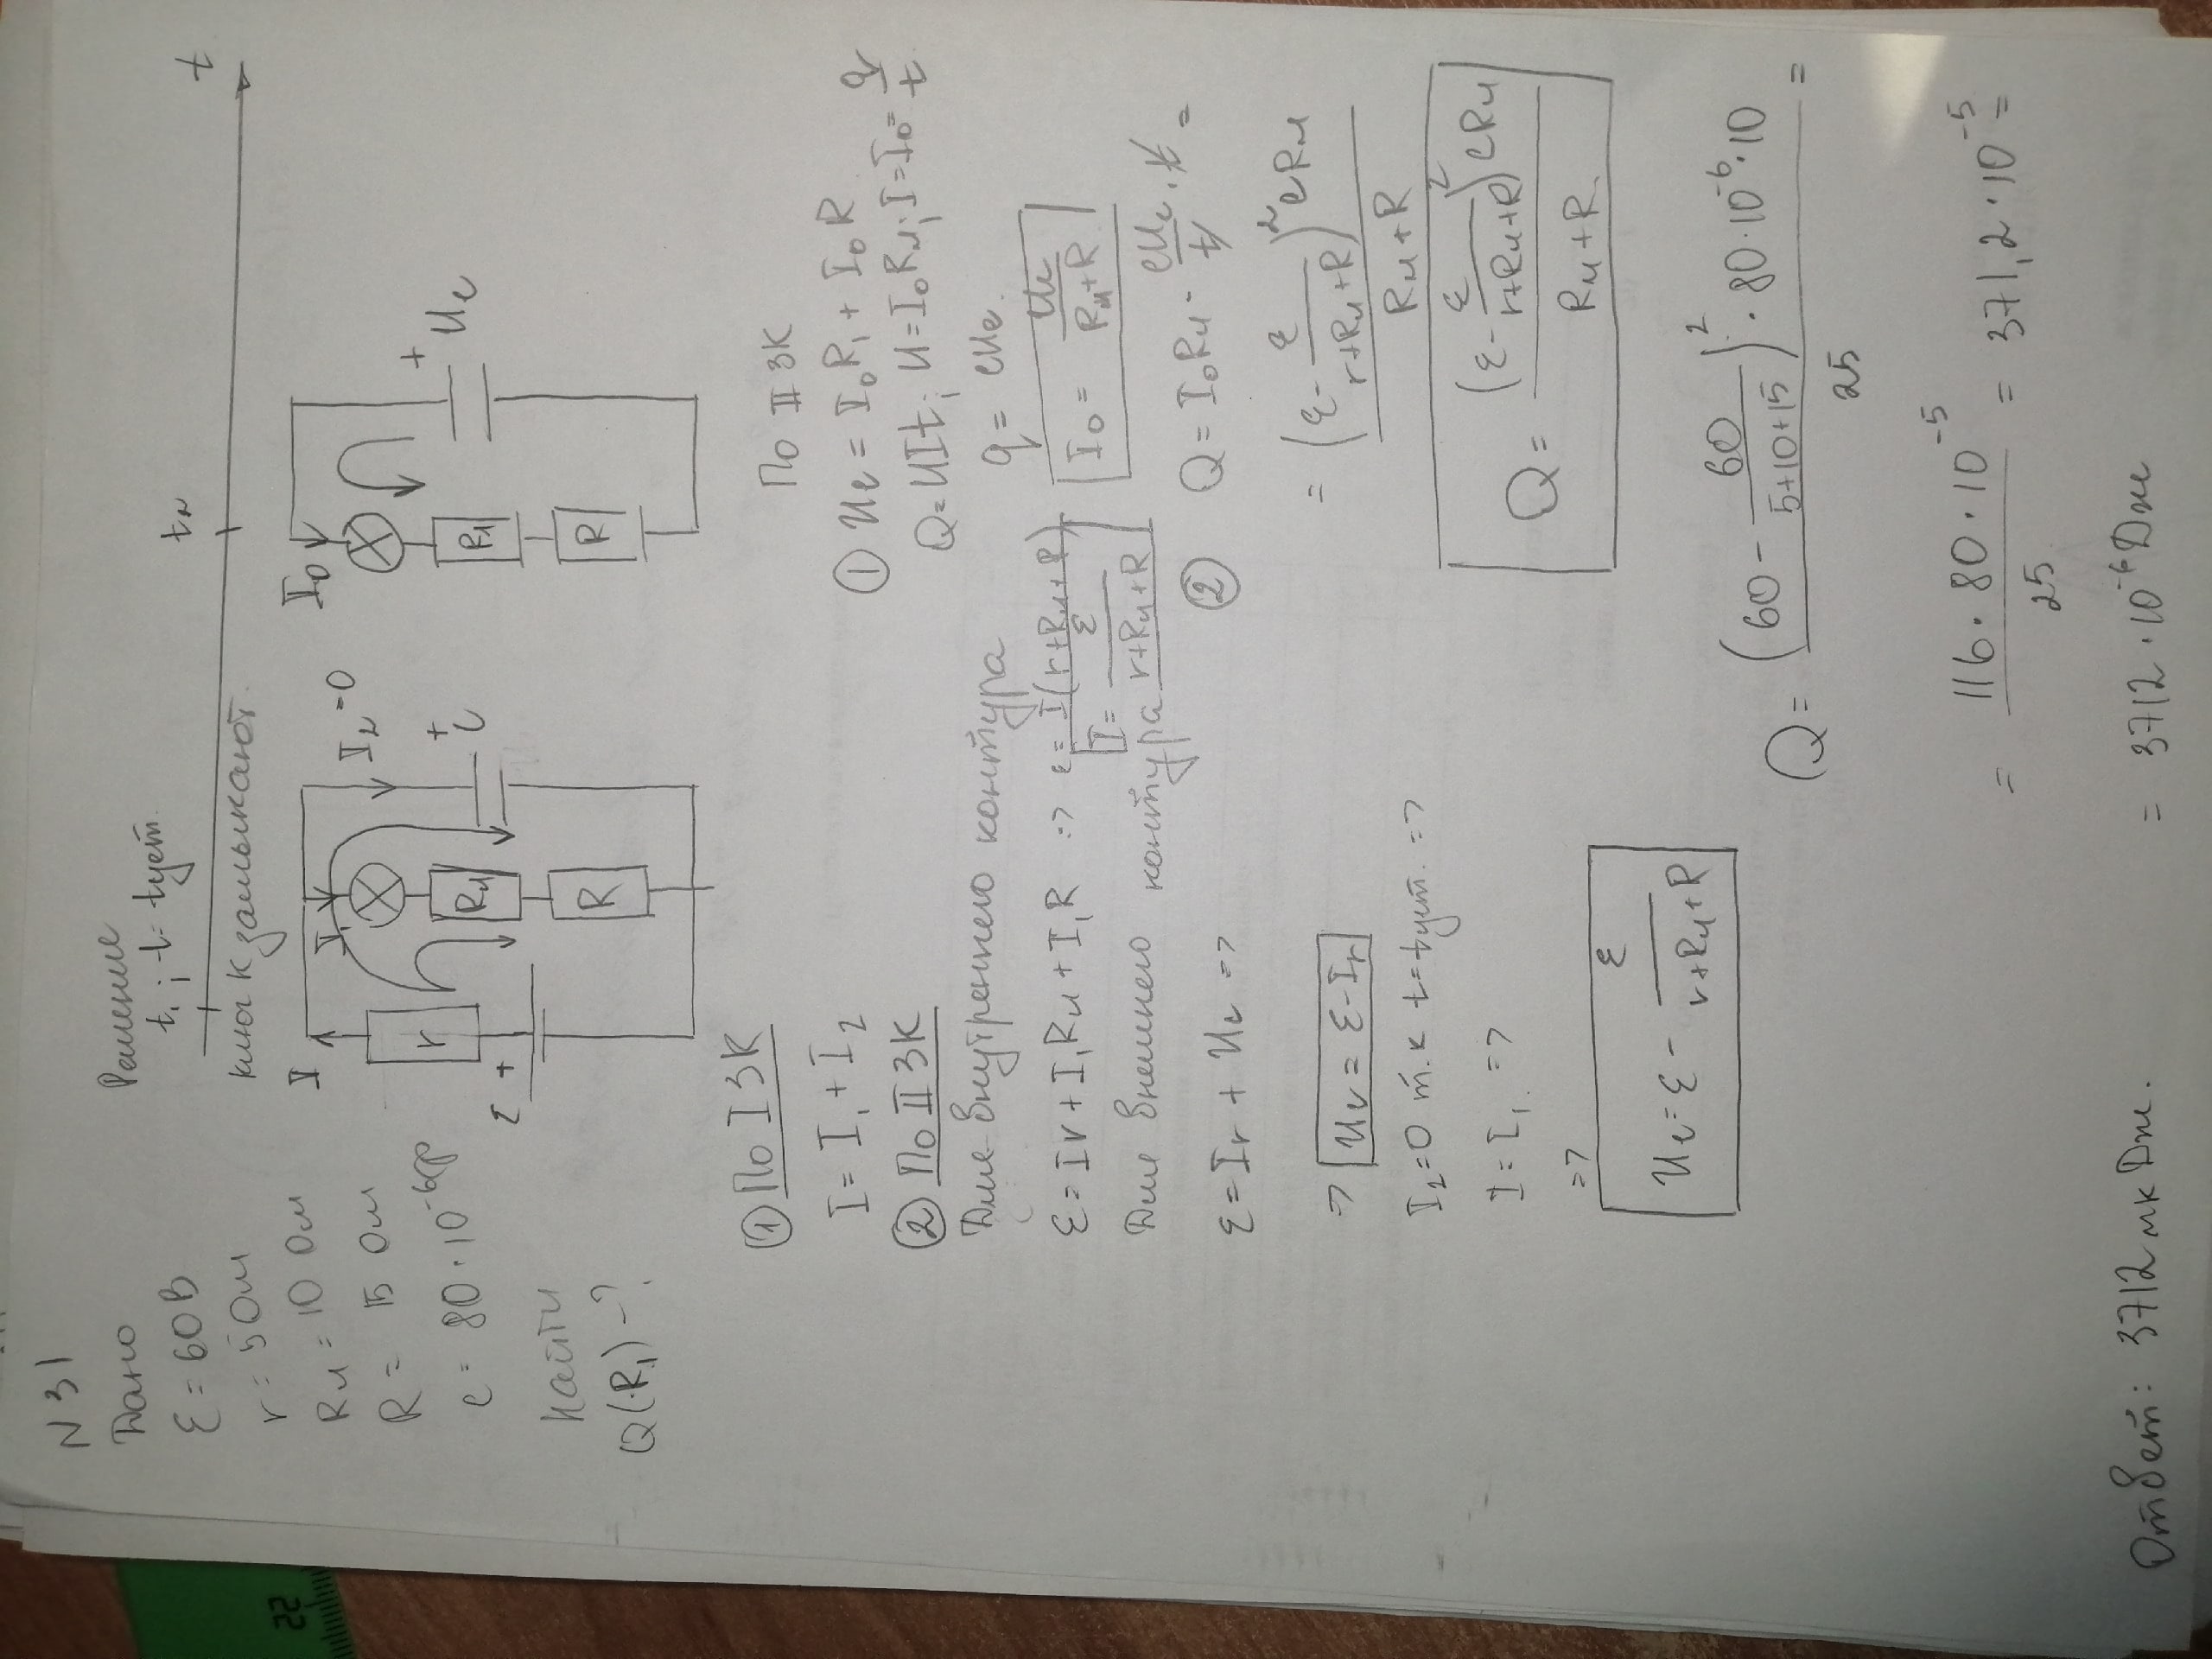 N 31
Дано
Ɛ = 60 В
r = 5 Ом
Rл = 10 Ом
R = 15 Ом
c = 80 · 10⁻⁶ Ф
Найти
Q(R₁) - ?
Решение
t₁ ; t = tуст.
t₂
t
ключ К замыкают
I
I₁
I₂ = 0
r
Rл
R
Ɛ +
+
C
I₀
R₁
R
+
Uc
① По I ЗК
I = I₁ + I₂
② По II ЗК
Для внутреннего контура
Ɛ = Ir + I₁Rл + I₁R => Ɛ = I(r+Rл+R)
I = Ɛ / (r+Rл+R)
Для внешнего контура
Ɛ = Ir + Uc =>
=> Uc = Ɛ - Ir
I₂ = 0 т.к t = tуст. =>
I = I₁ =>
=>
Uc = Ɛ - Ɛ / (r+Rл+R)
По II ЗК
① Uc = I₀R₁ + I₀R
Q = UIt; U = I₀Rл; I = I₀ = q/t
q = cUc.
I₀ = Uc / (Rл+R)
② Q = I₀Rл · cUc/t · t =
= (Ɛ - Ɛ/(r+Rл+R))² cRл / (Rл+R)
Q = (Ɛ - Ɛ/(r+Rл+R))² cRл / (Rл+R)
Q = (60 - 60/(5+10+15))² · 80·10⁻⁶·10 / 25 =
= 116 · 80 · 10⁻⁵ / 25 = 371,2 · 10⁻⁵ =
= 3712 · 10⁻⁶ Дж
Ответ: 3712 мк Дж.